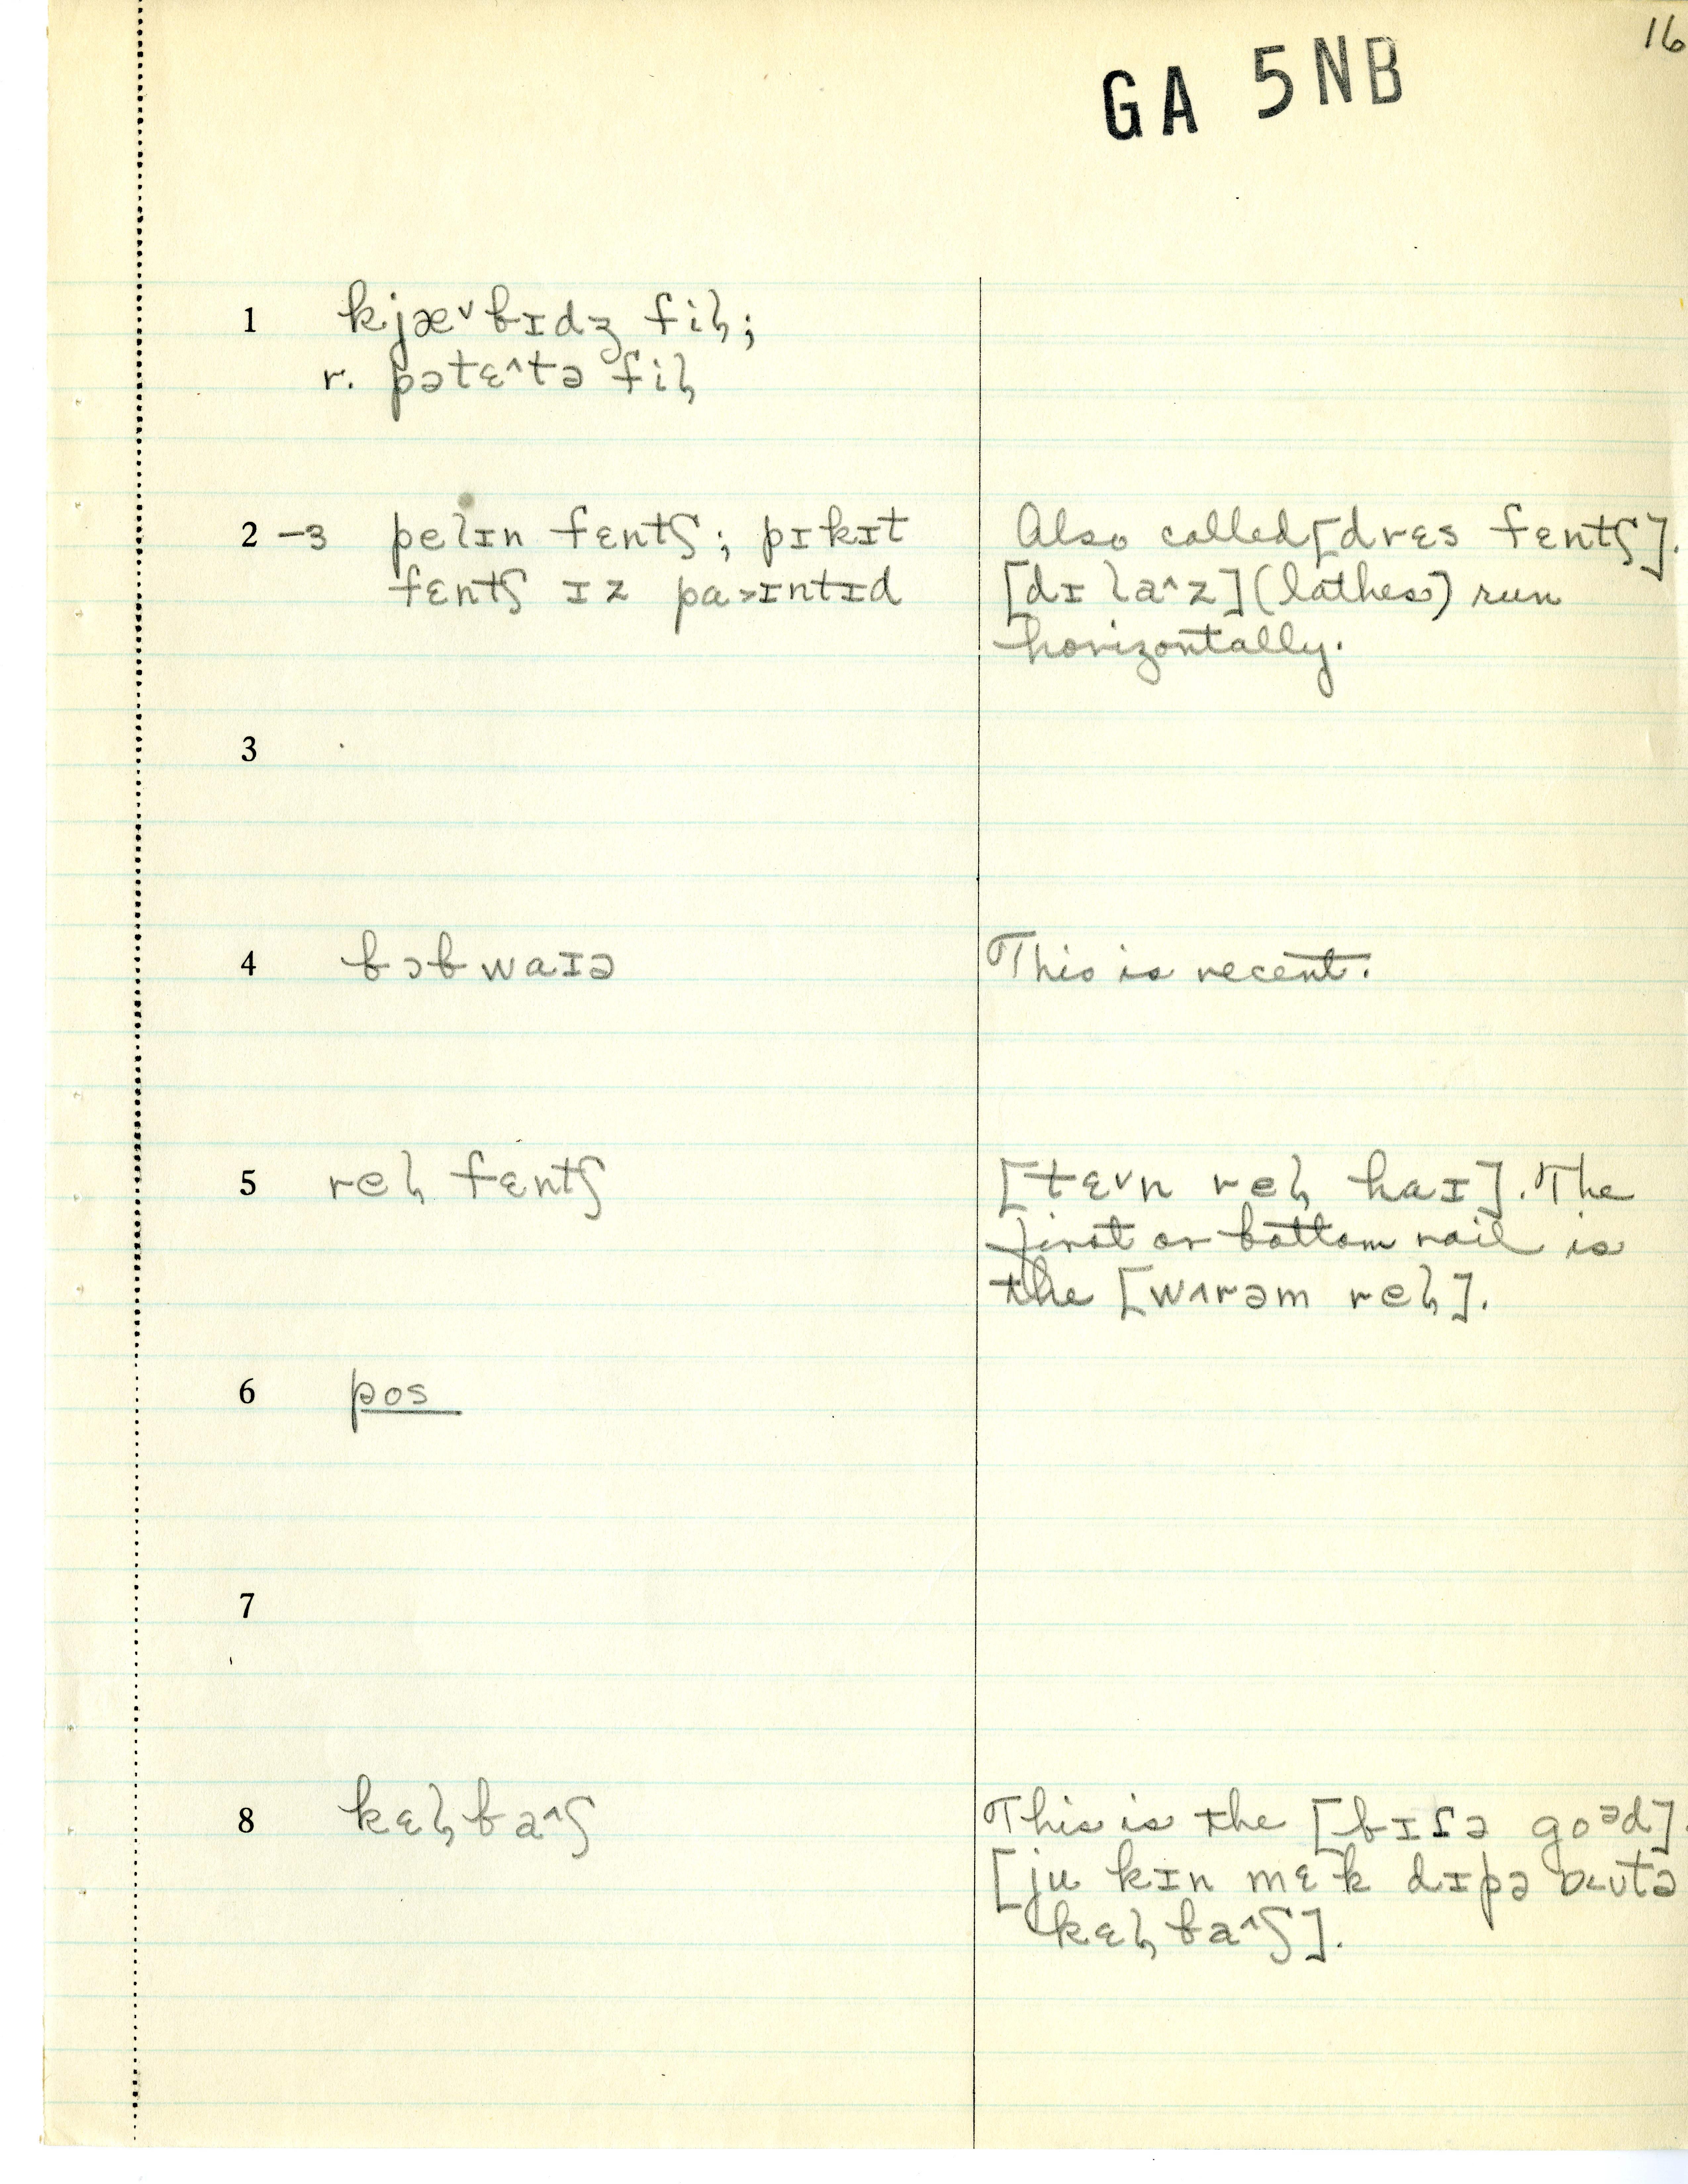 16
GA 5NB
1 kjæ˅bɪdʒ fiɫ;
r. pətɛ˄tə fiɫ
2 -3 pelɪn fɛntʃ; pɪkɪt
fɛntʃ ɪz pa˃ɪntɪd
Also called [drɛs fɛntʃ].
[dɪ la˄z] (lathes) run
horizontally.
3
4 bɔbwaɪə
This is recent.
5 reɫ fɛntʃ
[tɛ˅n reɫ haɪ]. The
first or bottom rail is
the [wʌrəm reɫ].
6 pos
7
8 kɛɫba˄ʃ
This is the [bɪɾə goᵊd].
[ju kɪn mɛk dɪpə ɒ˂utə
kɛɫba˄ʃ].